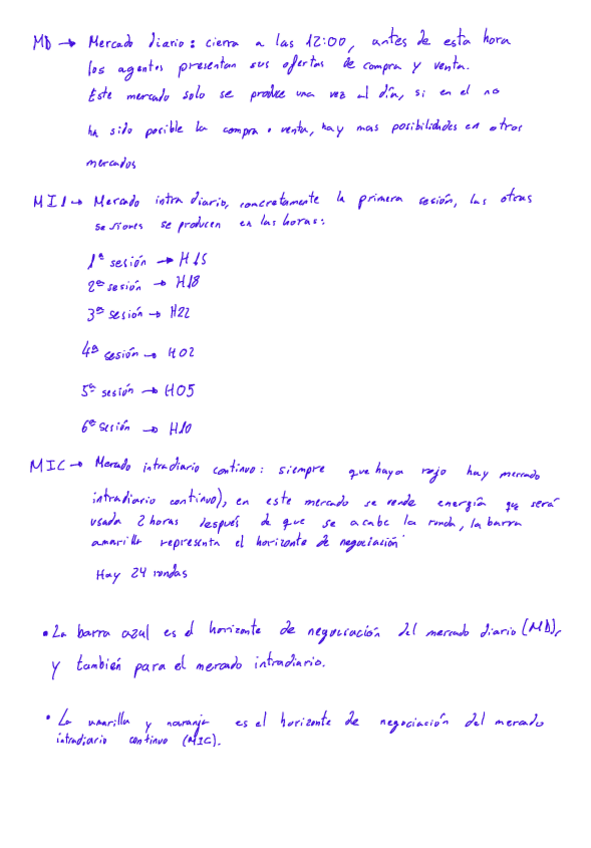 MD → Mercado diario: cierra a las 12:00, antes de esta hora
los agentes presentan sus ofertas de compra y venta.
Este mercado solo se produce una vez al día, si en el no
ha sido posible la compra o venta, hay mas posibilidades en otros
mercados
MI1 → Mercado intra diario, concretamente la primera sesión, las otras
sesiones se producen en las horas:
1ª sesión → H15
2ª sesión → H18
3ª sesión → H22
4ª sesión → H02
5ª sesión → H05
6ª sesión → H10
MIC → Mercado intradiario continuo: siempre que haya rojo hay mercado
intradiario continuo), en este mercado se vende energía que será
usada 2 horas después de que se acabe la ronda, la barra
amarilla representa el horizonte de negociación
Hay 24 rondas
• La barra azul es el horizonte de negociación del mercado diario (MD),
y también para el mercado intradiario.
• La amarilla y naranja es el horizonte de negociación del mercado
intradiario continuo (MIC).